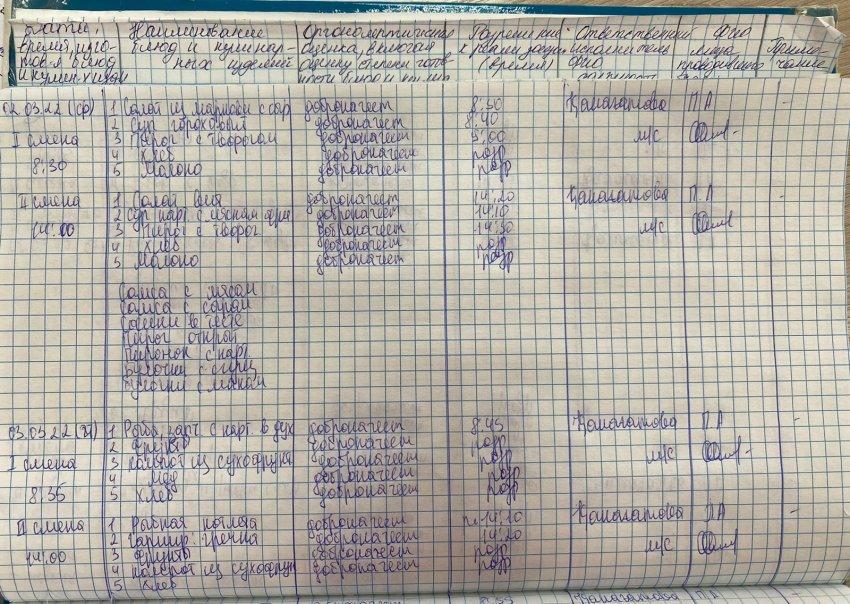 Дата, Наименование Органолептическ Разрешение Ответственный ФИО
время, изго- блюд и кулинар- оценка, включая к реализации исполнитель лица Приме-
товл блюд ных изделий оценку степени готов- (время) ФИО проводившего чание
и кулин изделий ности блюд
02.03.22 (ср) 1 Салат из моркови с сыр доброкачест 8:30 П А -
2 Суп гороховый доброкачест 8:40
I смена 3 Пирог с творогом доброкачест 9:00 м/с
4 Хлеб доброкачест разр
8:30 5 Молоко доброкачест разр
II смена 1 Салат доброкачест 14:20 П. А
2 Суп карт с мясном фри доброкачест 14:10
14:00 3 Пирог с творог доброкачест 14:30 м/с
4 Хлеб доброкачест разр
5 Молоко доброкачест разр
Самса с мясом
Самса с сыром
Сосиски в тесте
Пирог открой
Пирожок с карт
Булочки с
Булочки с маком
03.03.22 (чт) 1 Рыба зап с карт в дух доброкачест 8:45 П А -
2 Фрукты доброкачест разр
I смена 3 компот из сухофрук доброкачест разр м/с
4 Мед доброкачест разр
8:35 5 Хлеб доброкачест разр
II смена 1 Рыбная котлета доброкачест 14:10 П А -
2 Гарнир: гречка доброкачест 14:20
14:00 3 Фрукты доброкачест разр м/с
4 компот из сухофрук доброкачест разр
5 Хлеб